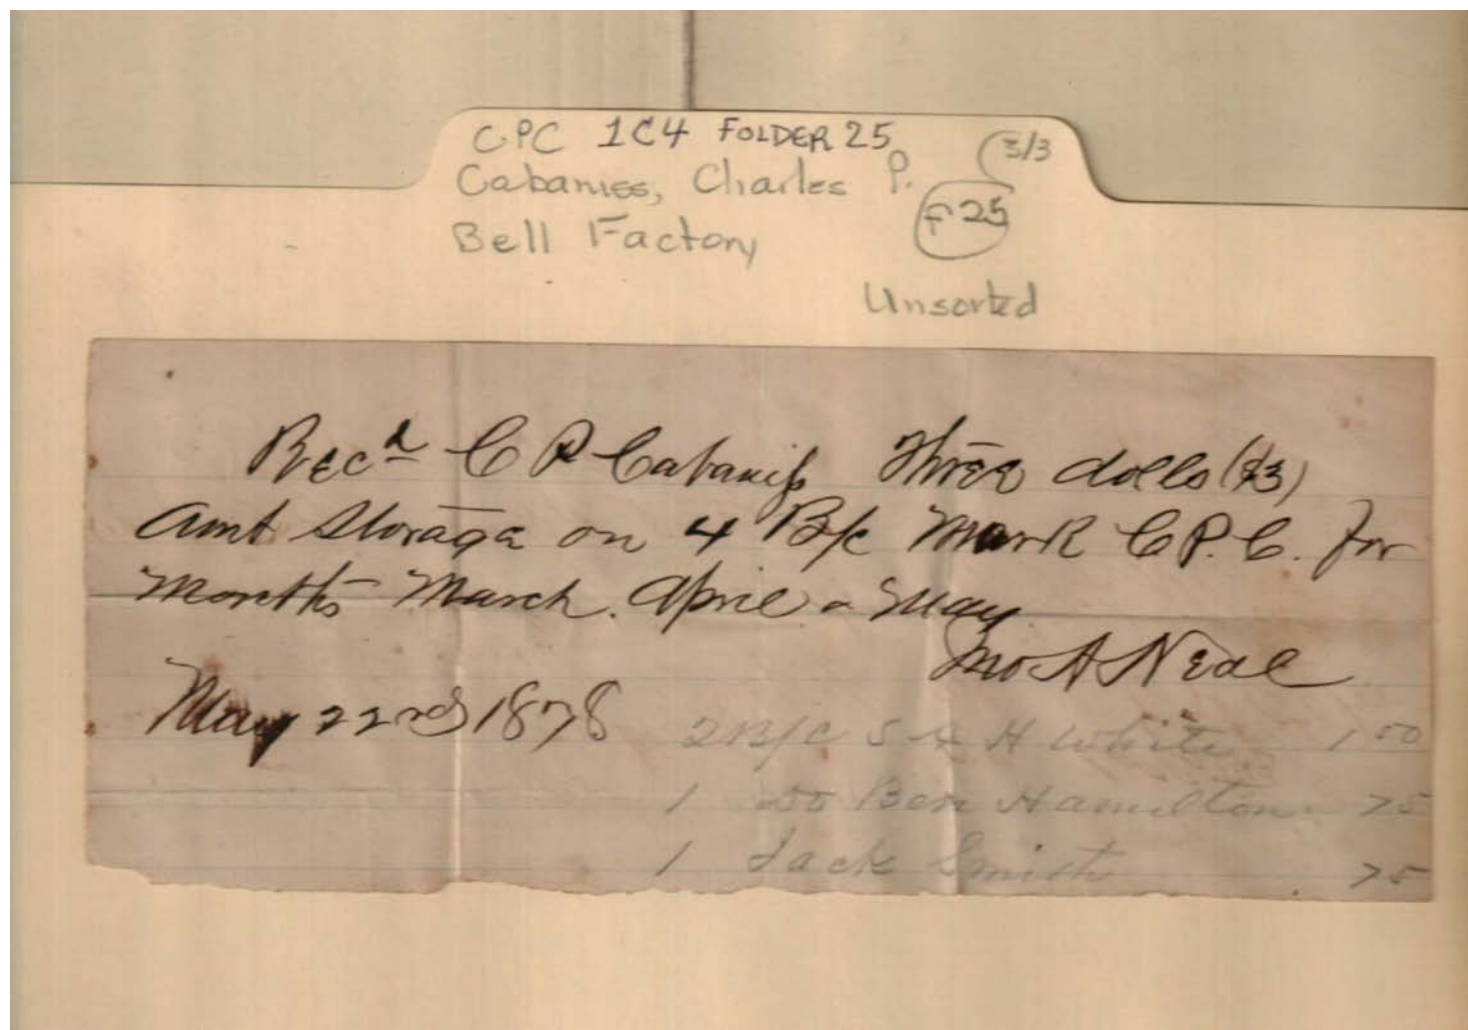 CPC 1C4 FOLDER 25
3/3
Cabaniss, Charles P.
F 25
Bell Factory
Unsorted
Recd C P Cabaniss Three dolls ($3)
Amt Storage on 4 B/C Mark C.P.C. for
Months March. April & May
Jno A Neal
May 22nd 1878
2 B/C S & H White 1 50
1 do Ben Hamilton 75
1 Jack Smith 75